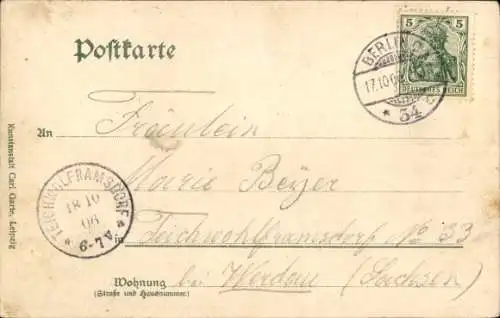 Postkarte
5 5
DEUTSCHES REICH
BERLIN
17.10.06
* 34
An Fräulein
Marie Beyer
in Teichwolframsdorf No 33
bei Werdau (Sachsen)
Wohnung
(Straße und Hausnummer)
TEICHWOLFRAMSDORF
18 10
06
* 6-7 N *
Kunstanstalt Carl Garte, Leipzig